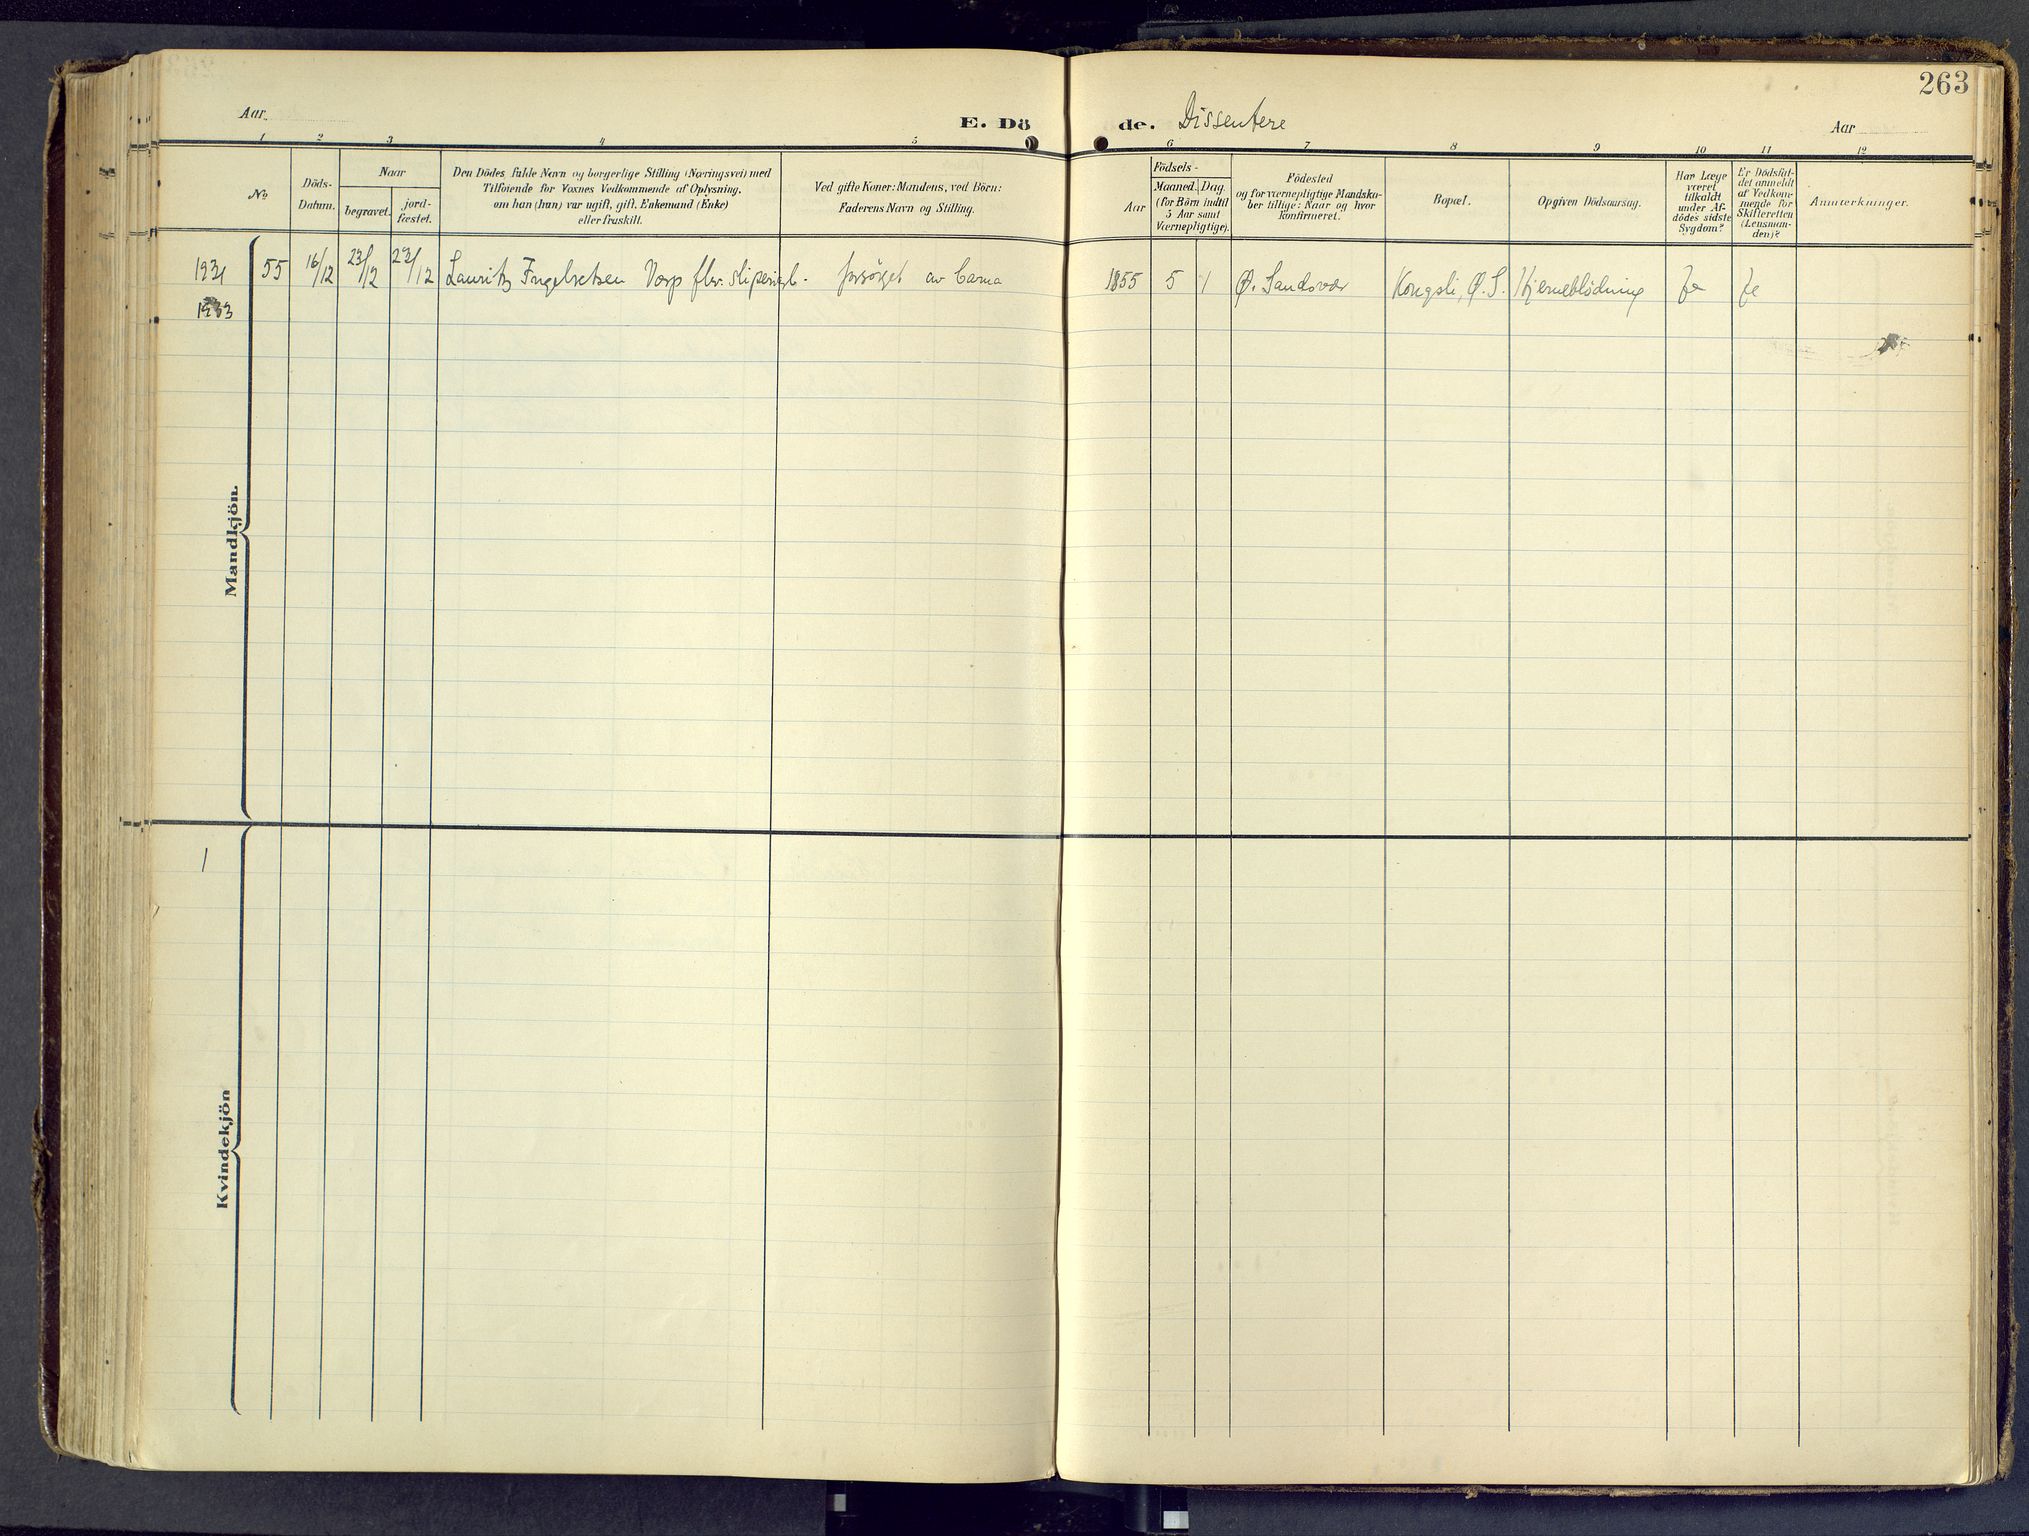 263
Aar
E. Dö
de. Dissentere
Aar
1 2 3 4 5 6 7 8 9 10 11 12
No
Döds-
Datum.
Naar
begravet.
jord-
fæstet.
Den Dödes fulde Navn og borgerlige Stilling (Næringsvei) med
Tilföiende for Voxnes Vedkommende af Oplysning.
om han (hun) var ugift, gift, Enkemand (Enke)
eller fraskilt.
Ved gifte Koner: Mandens, ved Börn:
Faderens Navn og Stilling.
Aar
Födsels-
Maaned. Dag.
(for Börn indtil
5 Aar samt
Værnepligtige).
Födested
og for værnepligtige Mandska-
ber tillige: Naar og hvor
konfirmeret.
Bopæl.
Opgiven Dödsaarsag.
Har Læge
været
tilkaldt
under Af-
dödes sidste
Sygdom?
Er Dödsfal-
det anmeldt
af Vedkom-
mende for
Skifteretten
(Lensman-
den)?
Anmærkninger.
1931 55 16/12 23/12 23/12 Lauritz Ingebretsen Vorp flv. sliperiarb. forsørget av barna 1855 5 1 Ø. Sandsvær Kongsli, Ø. S. Hjerneblödning Ja Ja
1933
Mandkjön.
1
Kvindekjön